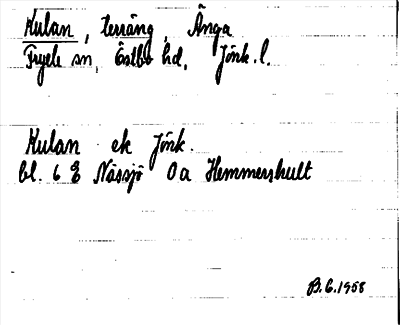 Kulan, terräng, Änga
Fryele sn, Östbo hd, Jönk. l.
Kulan ek Jönk.
bl. 6 E Nässjö 0a Hemmershult
B.G. 1958